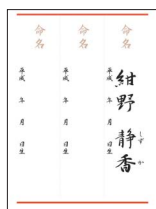 命名
紺野 静香
しず か
平成 年 月 日生
命名
平成 年 月 日生
命名
平成 年 月 日生